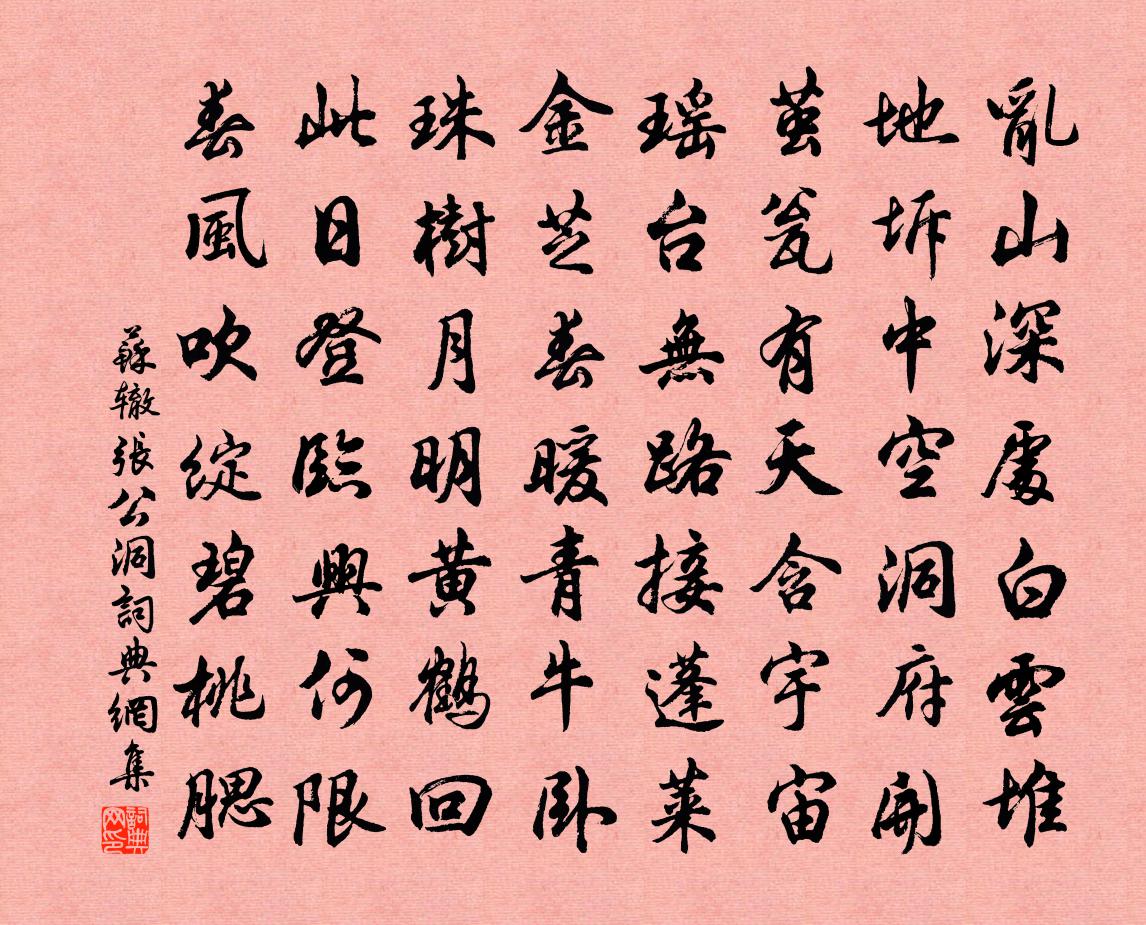 亂山深處白雲堆
地坼中空洞府開
茧瓮有天含宇宙
瑶台無路接蓬萊
金芝春暖青牛卧
珠樹月明黄鶴回
此日登臨興何限
春風吹綻碧桃腮
蘇辙張公洞詞典網集
詞典网印